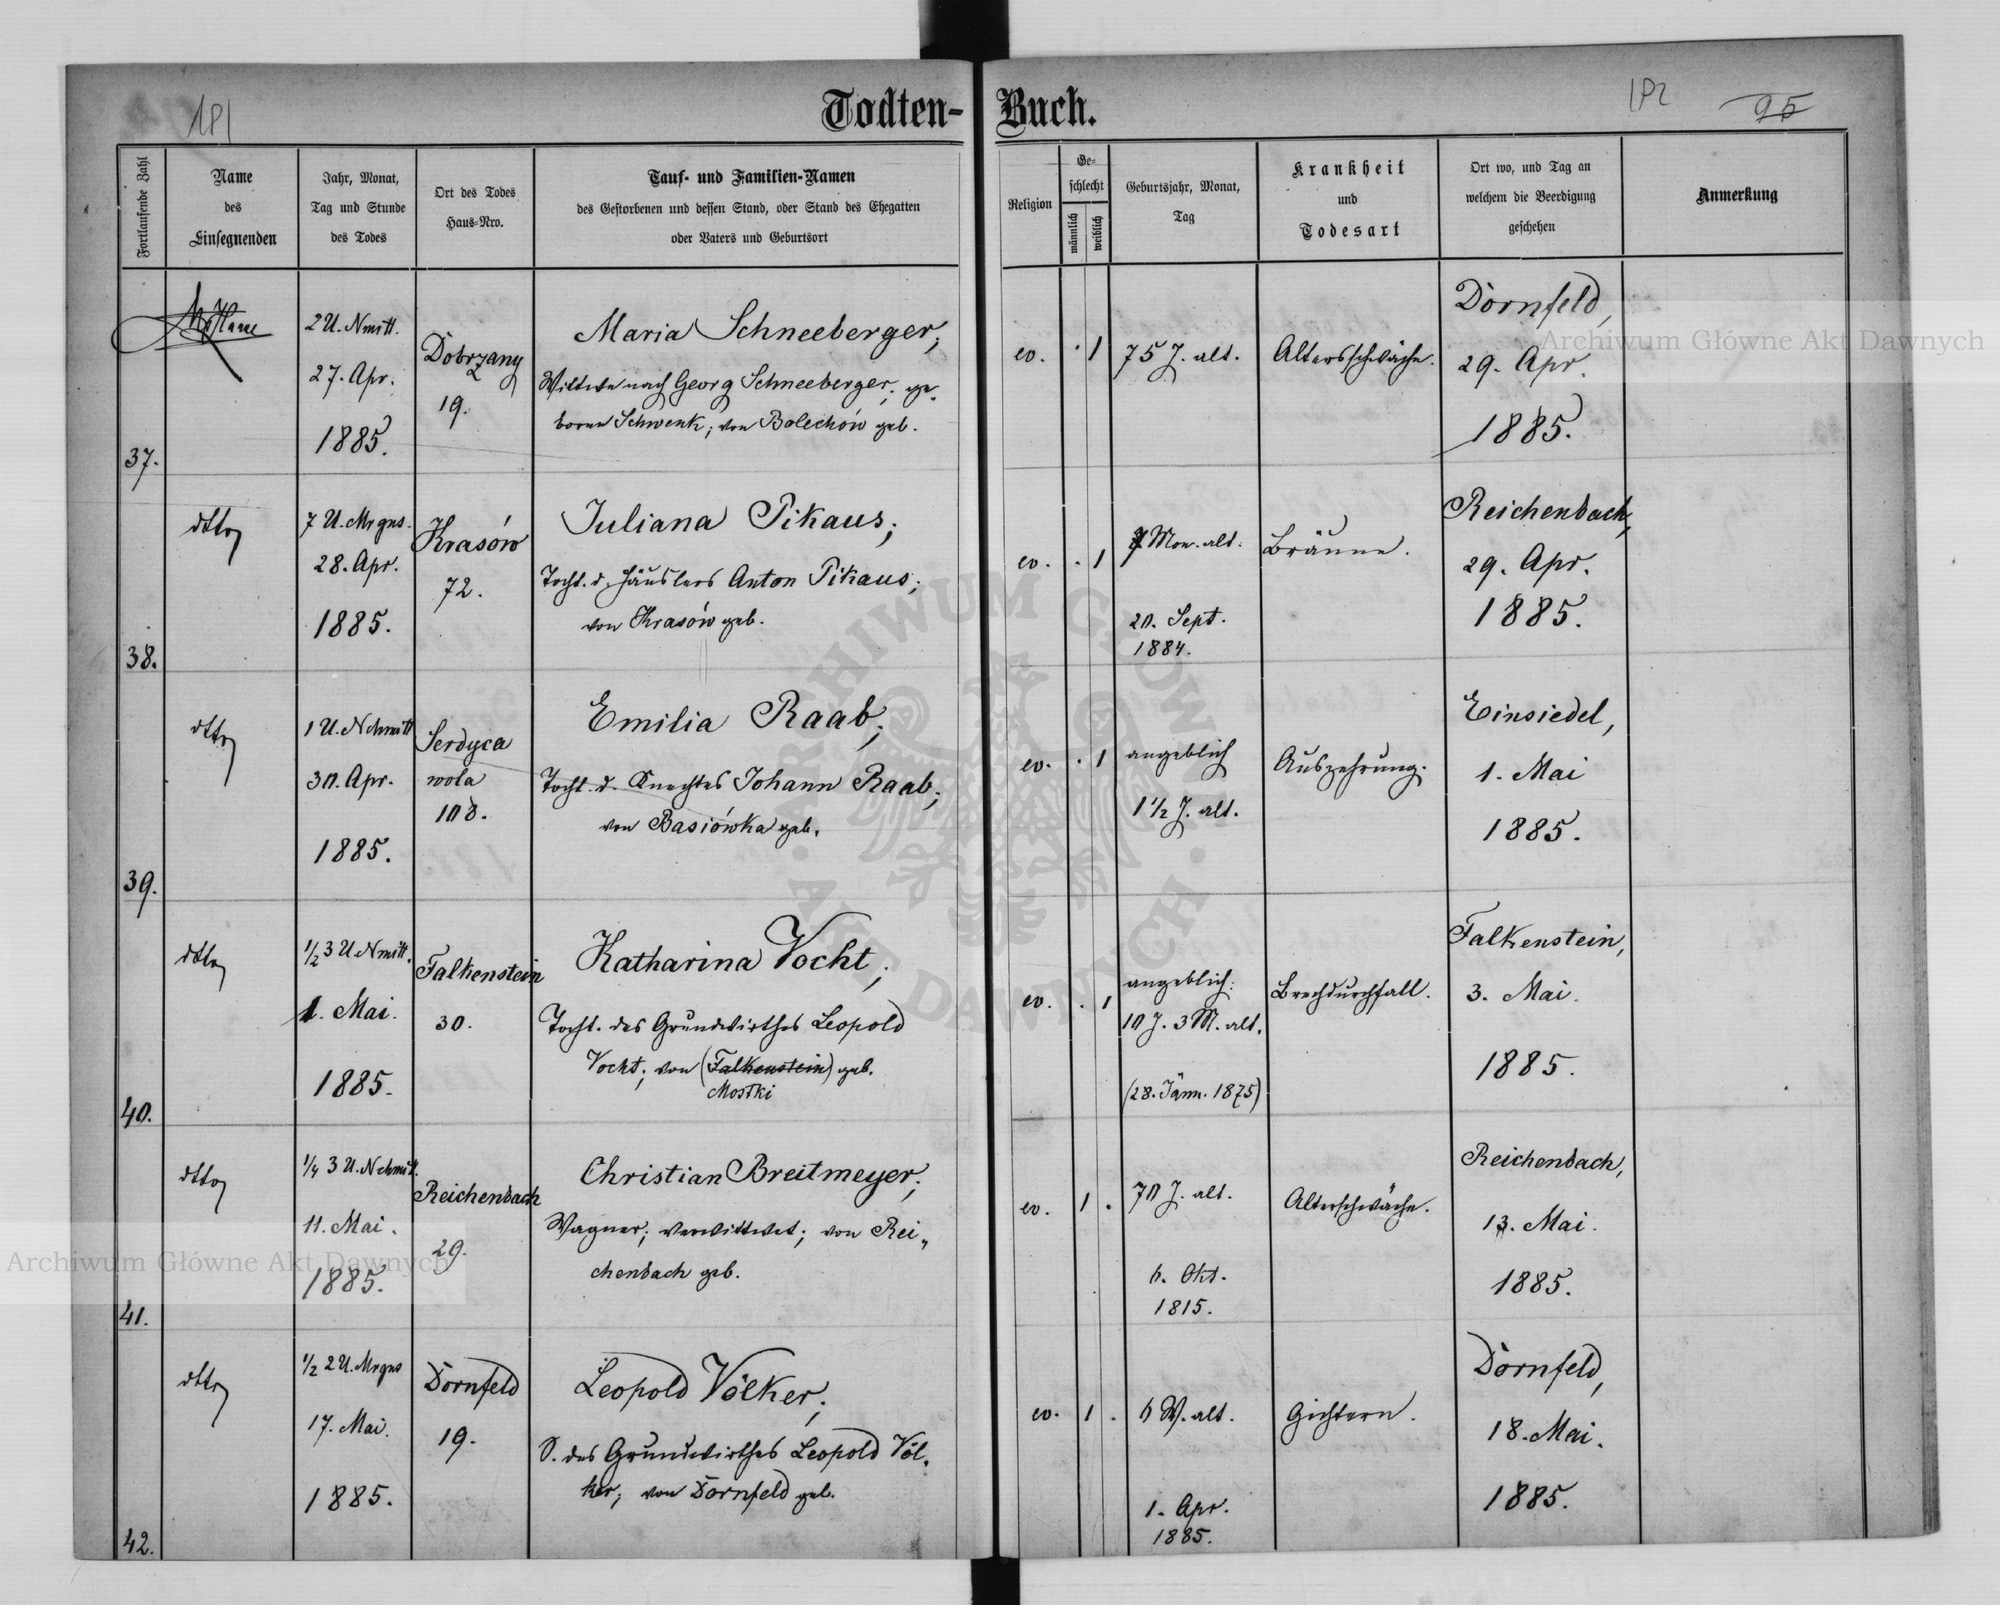 181
182
95
Todten-Buch.
Fortlaufende Zahl
Name
des
Einsegnenden
Jahr, Monat,
Tag und Stunde
des Todes
Ort des Todes
Haus-Nro.
Tauf- und Familien-Namen
des Gestorbenen und dessen Stand, oder Stand des Ehegatten
oder Vaters und Geburtsort
Religion
Ge-
schlecht
männlich
weiblich
Geburtsjahr, Monat,
Tag
Krankheit
und
Todesart
Ort wo, und Tag an
welchem die Beerdigung
geschehen
Anmerkung
37.
2 U. Nmitt.
27. Apr.
1885.
Dobrzany
19.
Maria Schneeberger,
Wittwe nach Georg Schneeberger, ge-
borne Schwenk; von Bolechów geb.
ev. . 1
75 J. alt.
Altersschwäche.
Dornfeld,
29. Apr.
1885.
38.
dtto
7 U. Mrgns.
28. Apr.
1885.
Krasów
72.
Juliana Pikaus;
Tocht. d. Häuslers Anton Pikaus;
von Krasów geb.
ev. . 1
7 Mon. alt.
20. Sept.
1884.
Bräune.
Reichenbach,
29. Apr.
1885.
39.
dtto
1 U. Nchmitt
30. Apr.
1885.
Serdyca
wola
108.
Emilia Raab;
Tocht. d. Knechtes Johann Raab;
von Basiówka geb.
ev. . 1
angeblich
1 1/2 J. alt.
Auszehrung.
Einsiedel,
1. Mai
1885.
40.
dtto
1/2 3 U. Nmitt.
1. Mai.
1885.
Falkenstein
30.
Katharina Vocht;
Tocht. des Grundwirthes Leopold
Vocht; von (Falkenstein) geb.
Mostki
ev. . 1
angeblich:
10 J. 3 M. alt.
(28. Jänn. 1875)
Brechdurchfall.
Falkenstein,
3. Mai.
1885.
41.
dtto
1/4 3 U. Nchmitt.
11. Mai.
1885.
Reichenbach
29.
Christian Breitmeyer;
Wagner; verwittwet; von Rei-
chenbach geb.
ev. 1 .
70 J. alt.
6. Okt.
1815.
Alterschwäche.
Reichenbach,
13. Mai.
1885.
42.
dtto
1/2 2 U. Mrgns
17. Mai.
1885.
Dornfeld
19.
Leopold Völker;
S. des Grundwirthes Leopold Völ-
ker; von Dornfeld geb.
ev. 1 .
6 W. alt.
1. Apr.
1885.
Gichtern.
Dornfeld,
18. Mai.
1885.
Archiwum Główne Akt Dawnych
Archiwum Główne Akt Dawnych
ARCHIWUM GŁÓWNE AKT DAWNYCH